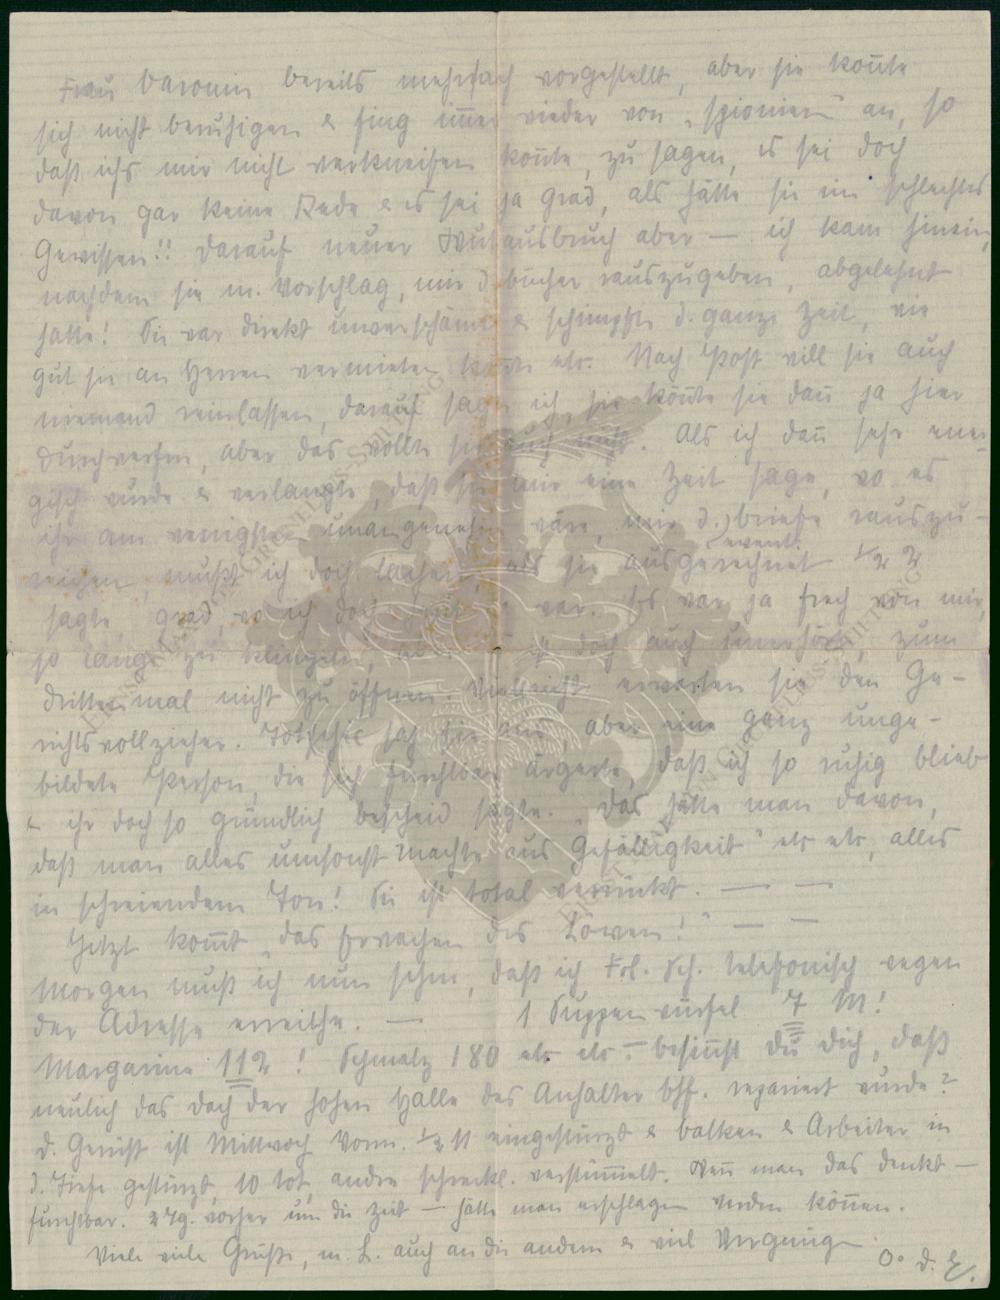 Frau Baronin bereits mehrfach vorgestellt, aber sie kon̄te
sich nicht beruhigen & fing im̄er wieder von „spionieren" an, so
daß ichs mir nicht verkneifen kon̄te, zu sagen, es sei doch
davon gar keine Rede & es sei ja grad, als hätte sie ein schlechtes
Gewissen!! Darauf neuer Wutausbruch aber — ich kam hinein,
nachdem sie m. Vorschlag, mir d. bücher rauszugeben, abgelehnt
hatte! Sie war direkt unverschämt & schimpfte d. ganze Zeit, wie
gut sie an Herren vermieten kön̄te etc. Nach Post will sie auch
niemand reinlassen, darauf sagte ich, sie kön̄te sie dan̄ ja hier
durchwerfen, aber das wollte sie auch nicht. Als ich dan̄ sehr ener-
gisch wurde & verlangte, daß sie mir eine Zeit sage, wo es
ihr am wenigsten unangenehm wäre, mir d. briefe rauszu-
event.
reichen, mußt ich doch lachen, als sie ausgerechnet ½ 2
sagte, grad wo ich doch da war. Es war ja frech von mir,
so lange zu klingeln, aber es ist doch auch unerhört, zum
drittenmal nicht zu öffnen. Vielleicht erwarten sie den Ge-
richtsvollzieher. Tötschic sah sie aus, aber eine ganz unge-
bildete Person, die sich furchtbar ärgerte, daß ich so ruhig blieb
& ihr doch so gründlich bescheid sagte. „Das hätte man davon,
daß man alles umsonst machte aus Gefälligkeit" etc etc, alles
in schreiendem Ton! Sie ist total verrückt. — —
Jetzt kom̄t „das Erwachen des Löwen!" — —
Morgen muß ich nun sehen, daß ich Frl. Sch. telefonisch wegen
der Adresse erreiche. — 1 Suppenwürfel 7 M!
Margarine 112 ! Schmalz 180 etc etc. — besin̄st du dich, daß
neulich das Dach der hohen Halle des Anhalter bhf. repariert wurde?
d. Gerüst ist Mittwoch Vorm. ½ 11 eingestürzt & balken & Arbeiter in
d. Tiefe gestürzt, 10 tot, andre schreckl. verstüm̄elt. Wen̄ man das denkt —
furchtbar. 2 Tg. vorher um die Zeit — hätte man erschlagen werden kön̄en.
Viele viele Grüße, m. L. auch an die andern & viel Vergnügen
O. d. E.